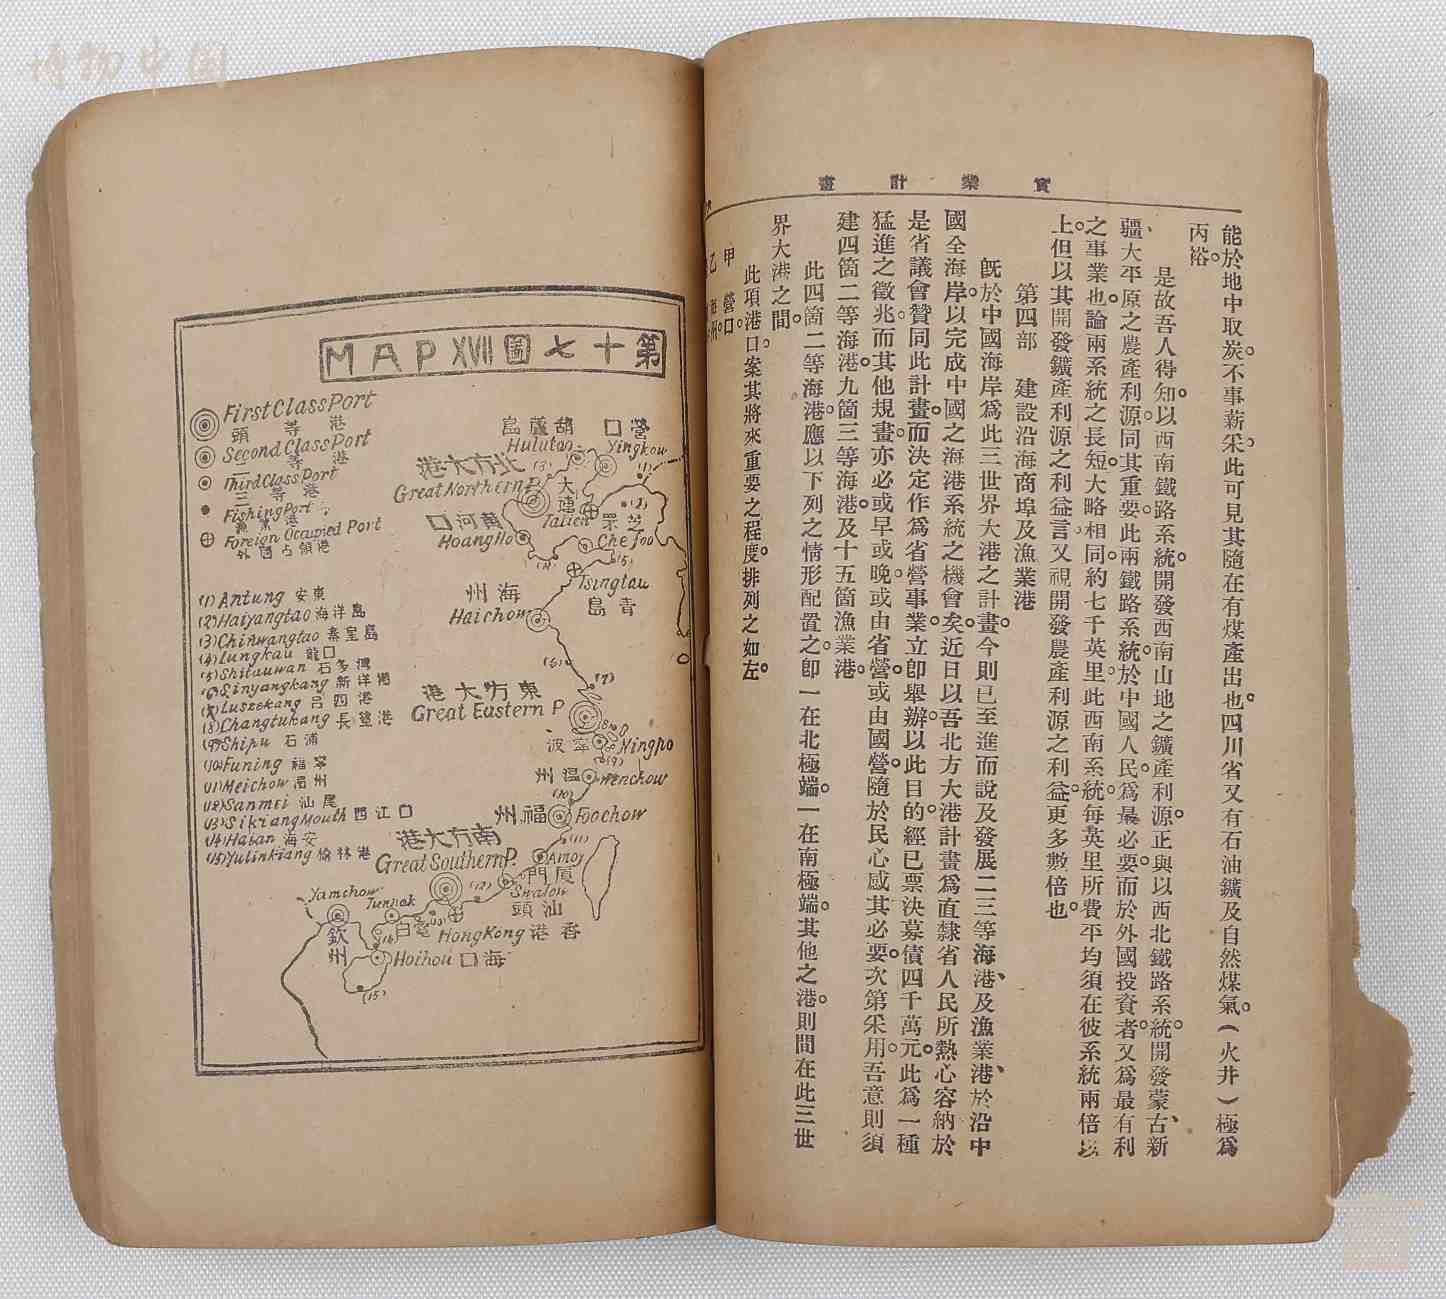 博物中国
實業計畫
能於地中取炭。不事薪采。此可見其隨在有煤產出也。四川省又有石油鑛及自然煤氣。（火井）極爲
丙裕。
是故吾人得知。以西南鐵路系統。開發西南山地之鑛產利源。正與以西北鐵路系統。開發蒙古、新
疆、大平原之農產利源。同其重要。此兩鐵路系統。於中國人民。爲最必要。而於外國投資者。又爲最有利
之事業也。論兩系統之長短。大略相同。約七千英里。此西南系統。每英里所費平均須在彼系統兩倍以
上。但以其開發鑛產利源之利益言。又視開發農產利源之利益。更多數倍也。
第四部　建設沿海商埠及漁業港
既於中國海岸爲此三世界大港之計畫。今則已至進而說及發展二三等海港、及漁業港、於沿中
國全海岸。以完成中國之海港系統之機會矣。近日以吾北方大港計畫。爲直隸省人民所熱心容納。於
是省議會贊同此計畫。而決定作爲省營事業。立卽舉辦。以此目的。經已票決募債四千萬元。此爲一種
猛進之徵兆。而其他規畫。亦必或早或晚。或由省營。或由國營。隨於民心感其必要。次第采用。吾意則須
建四箇二等海港。九箇三等海港。及十五箇漁業港。
此四箇二等海港。應以下列之情形配置之。卽一在北極端。一在南極端。其他之港。則間在此三世
界大港之間。
此項港口。案其將來重要之程度。排列之如左。
甲　營口。
乙　海州。
第十七圖 MAP XVII
First Class Port
頭等港
Second Class Port
二等港
Third Class Port
三等港
Fishing Port
漁業港
Foreign Occupied Port
外國占領港
(1) Antung 安東
(2) Haiyangtao 海洋島
(3) Chinwangtao 秦皇島
(4) Lungkau 龍口
(5) Shitauwan 石多灣
(6) Sinyangkang 新洋港
(7) Luszekang 呂四港
(8) Changtukang 長塗港
(9) Shipu 石浦
(10) Funing 福寧
(11) Meichow 湄州
(12) Sanmei 汕尾
(13) Sikiang Mouth 西江口
(14) Haian 海安
(15) Yulinkiang 榆林港
葫蘆島
Hulutao
營口
Yingkow
北方大港
Great Northern P.
(3)
(1)
(2)
大連
Talien
芝罘
Chefoo
黃河口
HoangHo
(4)
(5)
Tsingtau
青島
海州
Haichow
(6)
(7)
東方大港
Great Eastern P
(8)
寧波
Ningpo
(9)
溫州
Wenchow
(10)
福州
Foochow
(11)
南方大港
Great Southern P.
Amoy
廈門
(12)
Swatow
汕頭
Yamchow
欽州
Tunpak
電白
(13)
HongKong 香港
(14)
Hoihou 海口
(15)